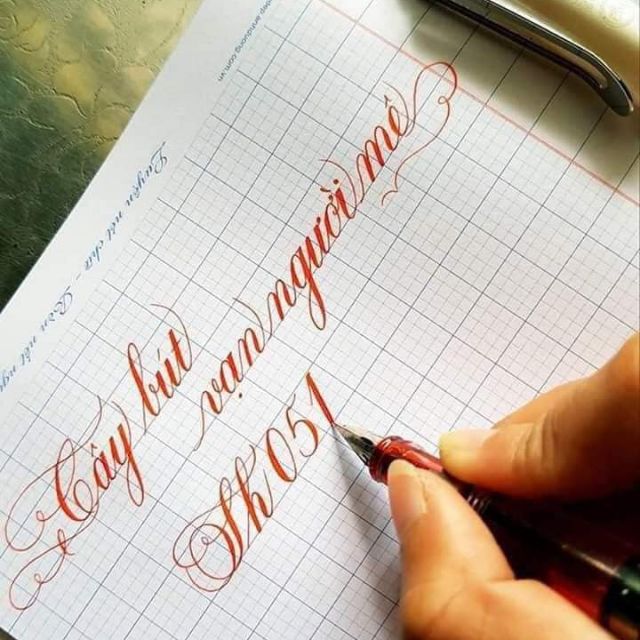 Cây bút
vạn người mê
Sh 051
Luyện nét chữ - Rèn nết